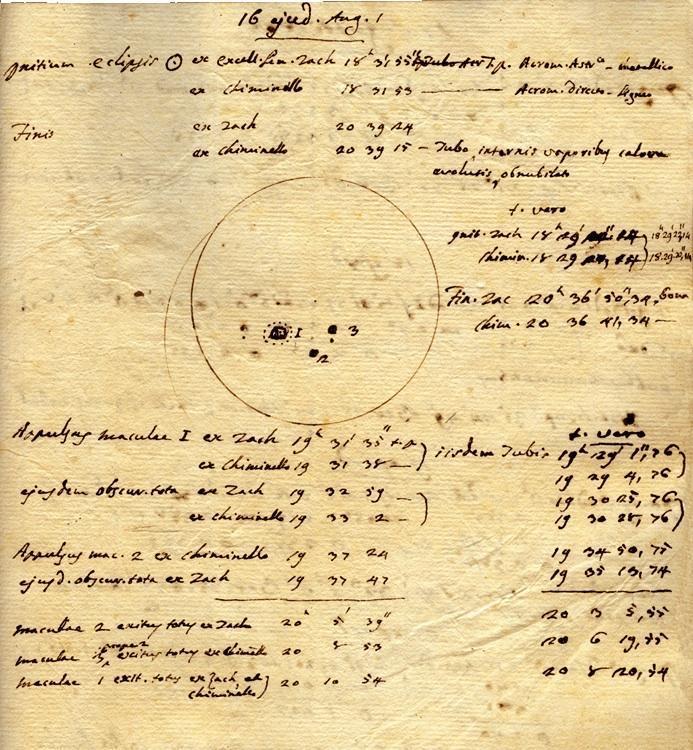 16 ejusd. Aug. 1
Initium eclipsis ☉ ex excell. Zach 18h 31' 55" t.p. Acrom. metallico
ex Chiminello 18 31 53 Acrom. Directo. ligneo
Finis ex Zach 20 39 24
ex Chiminello 20 39 15 — Tubo internis vaporibus calore
evolutis obnubilato
t. vero
Init. Zach 18h 29'
Chimin. 18 29
Fin. Zac 20h 36' 50",34, bona
Chim. 20 36 41, 34 —
1 3
2
Appulsus maculae I ex Zach 19h 31' 35" t.p.
ex Chiminello 19 31 38 —
iisdem Tubis
t. vero
19h 29' 1",76
19 29 4, 76
ejusdem obscur. tota ex Zach 19 32 59 — 19 30 25, 76
ex Chiminello 19 33 2 — 19 30 28, 76
Appulsus mac. 2 ex Chiminello 19 37 24 19 34 50, 75
ejusd. obscur. tota ex Zach 19 37 47 19 35 13, 74
maculae 2 exitus totus ex Zach 20h 5' 39" 20 3 5, 55
maculae exitus totus ex Chiminello 20 8 53 20 6 19, 55
maculae 1 exit. totus ex Zach et
Chiminello 20 10 54 20 8 20, 54